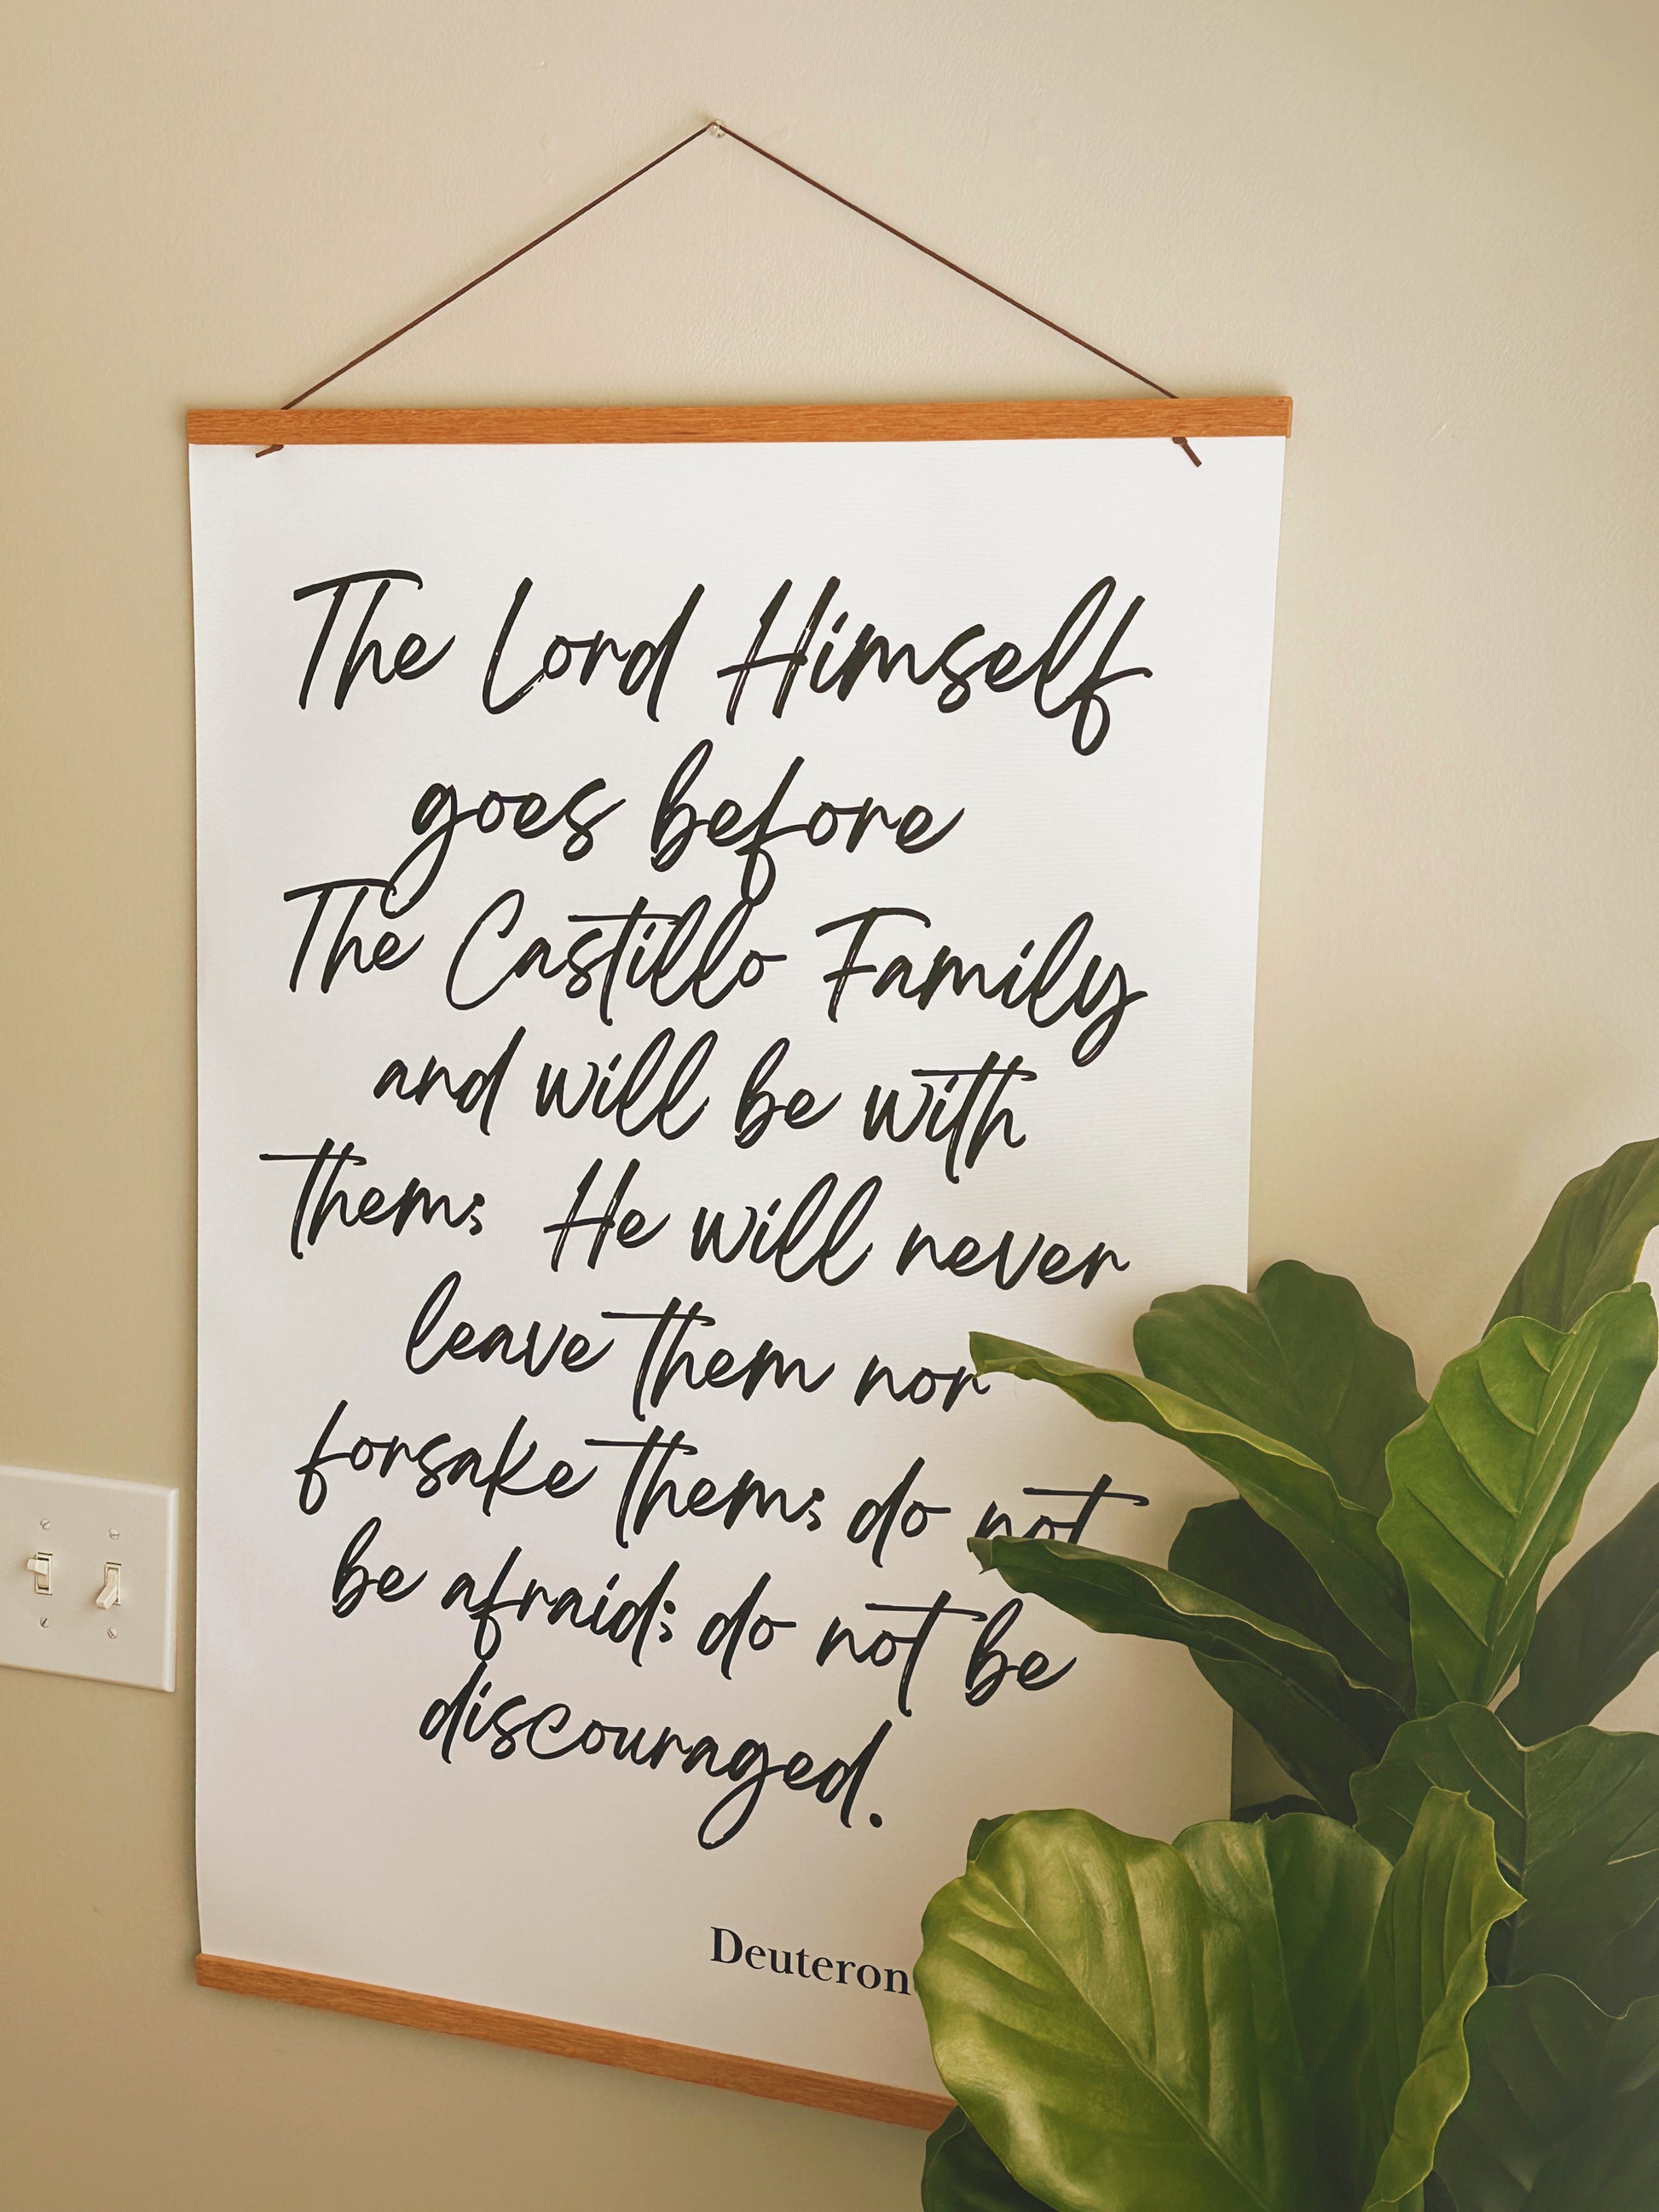 The Lord Himself
goes before
The Castillo Family
and will be with
them; He will never
leave them nor
forsake them; do not
be afraid; do not be
discouraged.
Deuteron